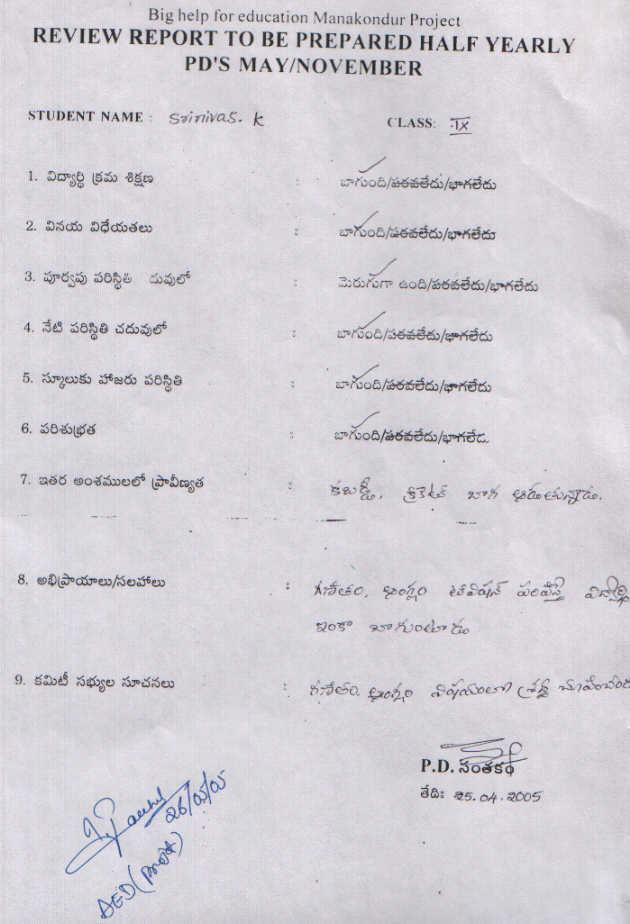 Big help for education Manakondur Project
REVIEW REPORT TO BE PREPARED HALF YEARLY
PD'S MAY/NOVEMBER
STUDENT NAME : Srinivas. K CLASS: IX
1. విద్యార్థి క్రమ శిక్షణ : బాగుంది/పరవలేదు/భాగలేదు
2. వినయ విధేయతలు : బాగుంది/పరవలేదు/భాగలేదు
3. పూర్వపు పరిస్థితి దువులో : మెరుగుగా ఉంది/పరవలేదు/భాగలేదు
4. నేటి పరిస్థితి చదువులో : బాగుంది/పరవలేదు/భాగలేదు
5. స్కూలుకు హాజరు పరిస్థితి : బాగుంది/పరవలేదు/భాగలేదు
6. పరిశుభ్రత : బాగుంది/పరవలేదు/భాగలేదు.
7. ఇతర అంశములలో ప్రావీణ్యత : కబడ్డీ, క్రికెట్ బాగ ఆడుతున్నాడు.
8. అభిప్రాయాలు/సలహాలు : గణితం, ఆంగ్లం విద్యార్థి
ఇంకా బాగుంటాడు
9. కమిటీ సభ్యుల సూచనలు : గణితం ఆంగ్లం విషయంలో శ్రద్ధ
P.D. సంతకం
తేది: 25.04.2005
26/05/05
AED